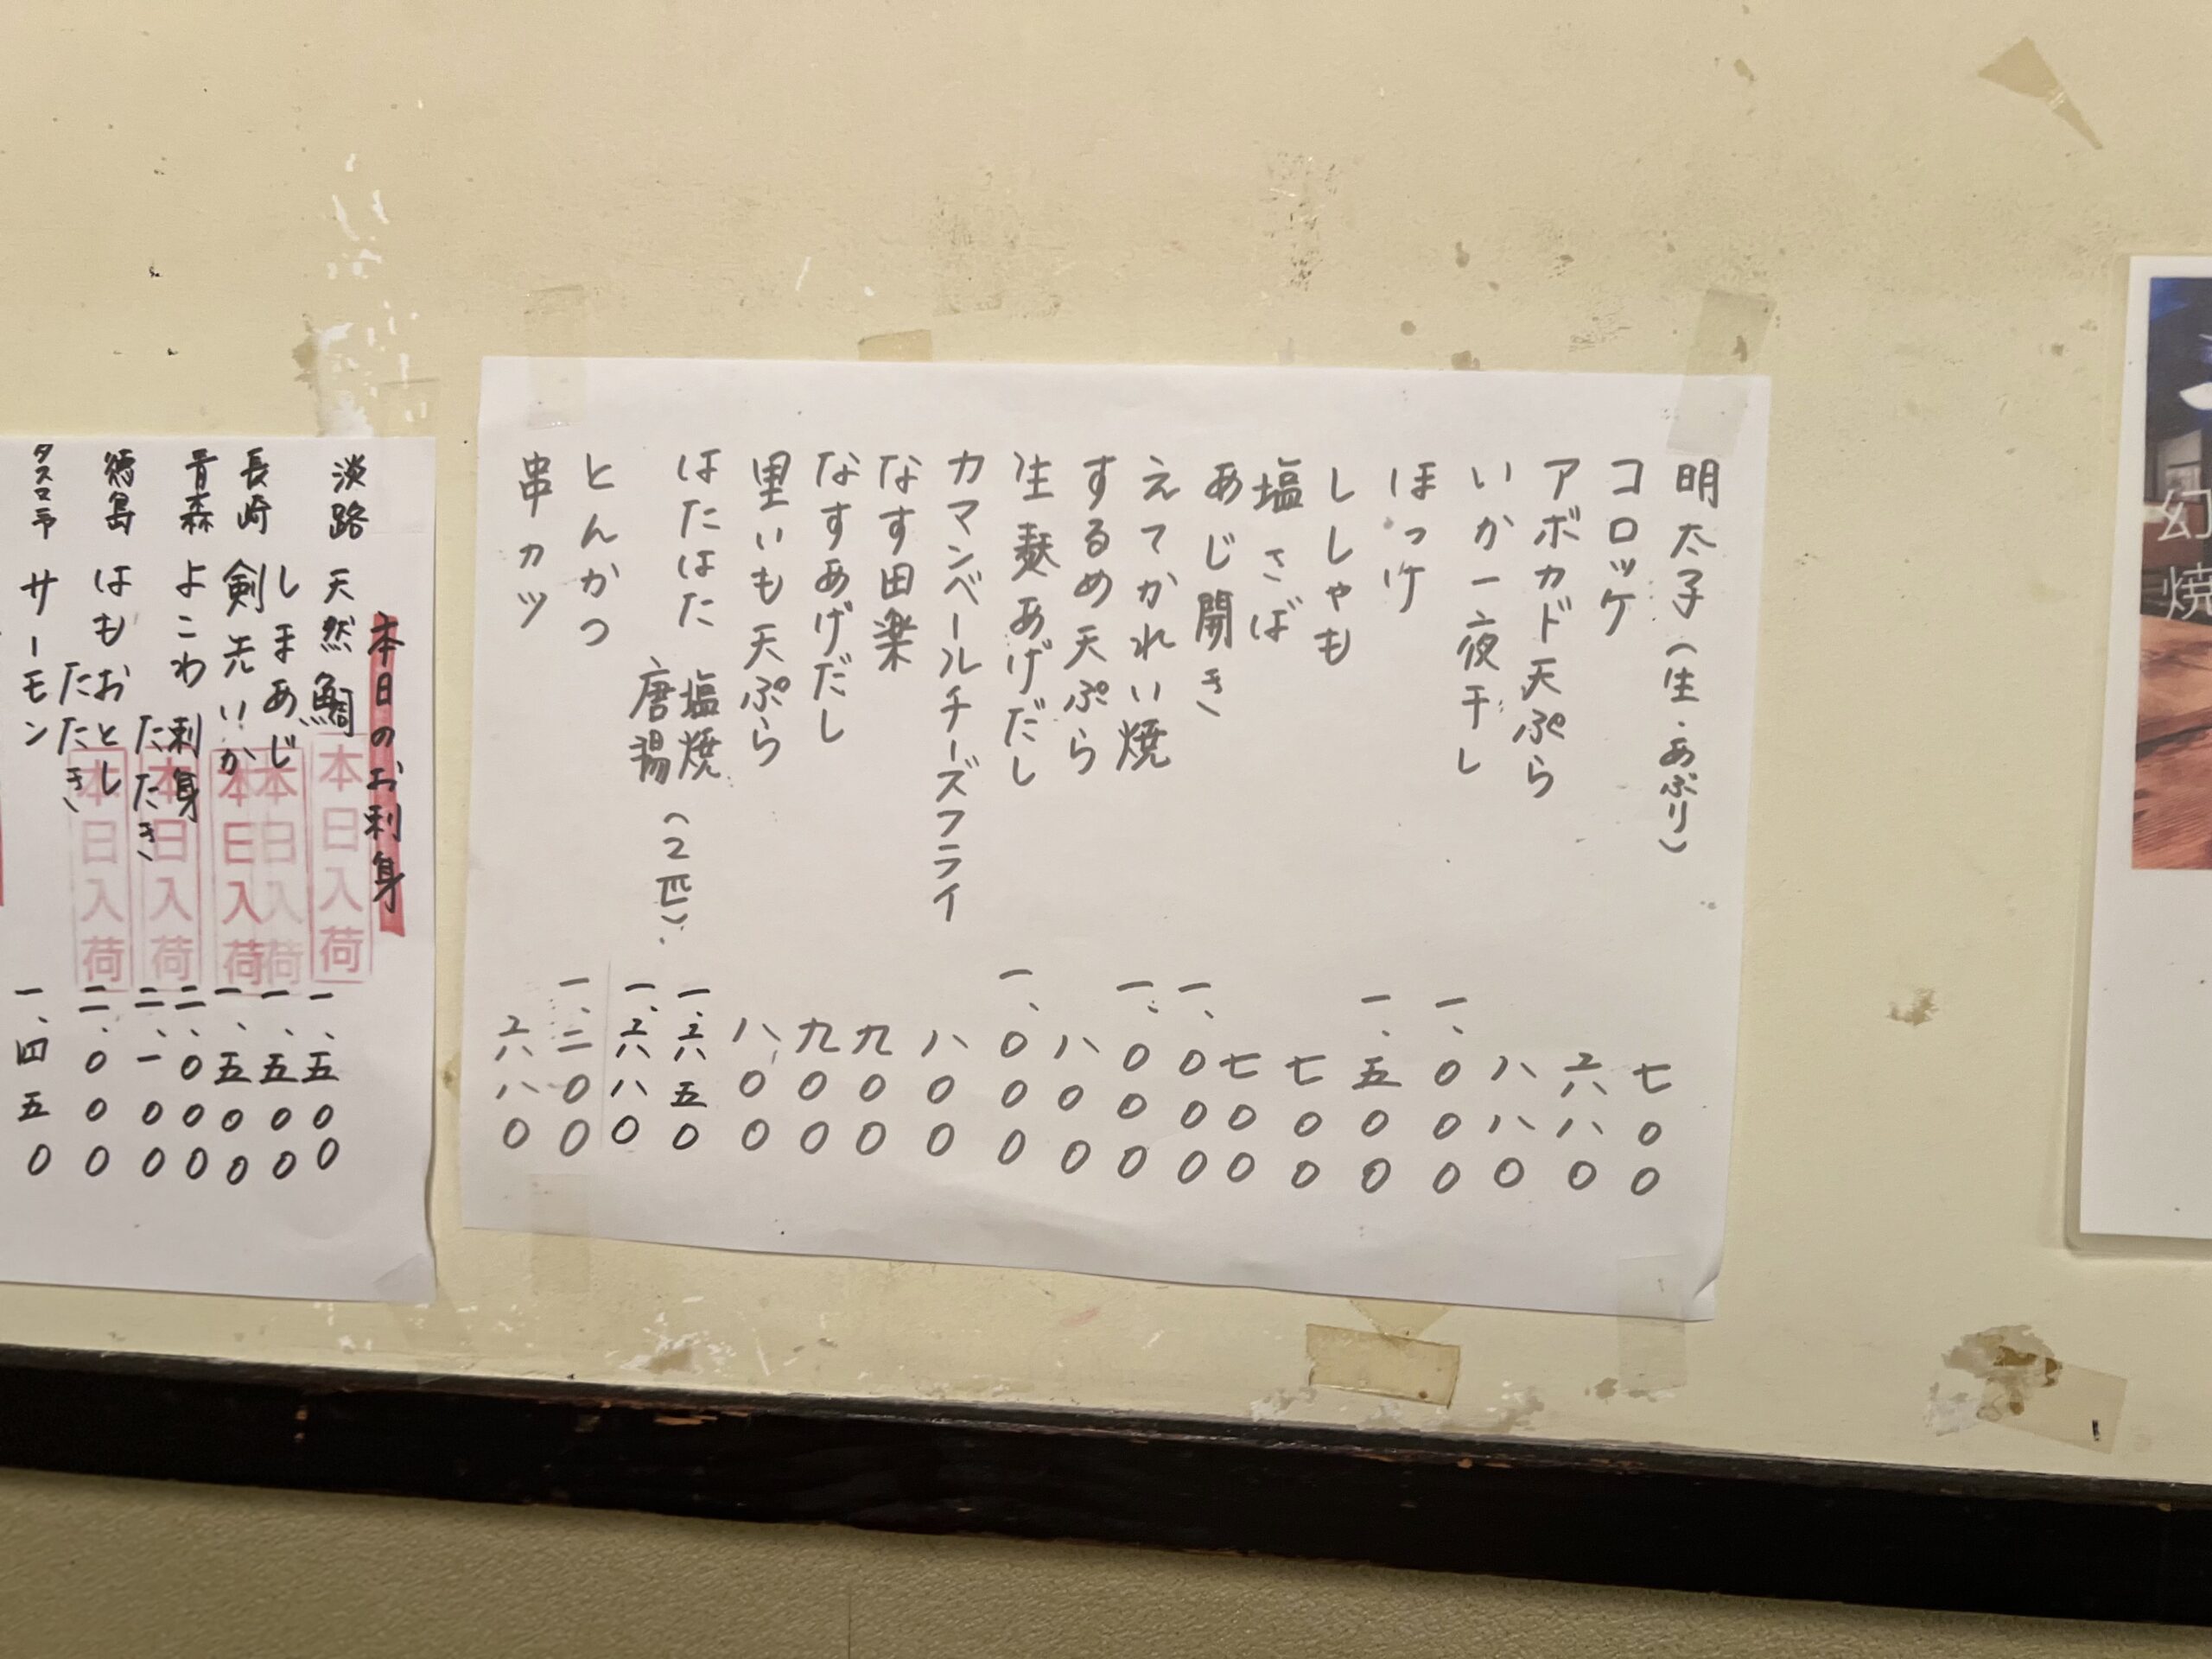 明太子(生・あぶり) 七〇〇
コロッケ 六八〇
アボカド天ぷら 八八〇
いか一夜干し 一、〇〇〇
ほっけ 一、五〇〇
ししゃも 七〇〇
塩さば 七〇〇
あじ開き 一、〇〇〇
えてかれい焼 一、〇〇〇
するめ天ぷら 八〇〇
生麩あげだし 一、〇〇〇
カマンベールチーズフライ 八〇〇
なす田楽 九〇〇
なすあげだし 九〇〇
里いも天ぷら 八〇〇
はたはた 塩焼 一、六五〇
唐揚 (2匹) 一、六八〇
とんかつ 一、二〇〇
串カツ 六八〇
本日のお刺身
淡路 天然鯛 一、五〇〇
しまあじ 一、五〇〇
長崎 剣先いか 一、五〇〇
青森 よこわ 刺身 二、〇〇〇
たたき 二、一〇〇
徳島 はもおとし 二、〇〇〇
たたき
サーモン 一、四五〇
本日入荷
本日入荷
本日入荷
本日入荷
本日入荷
幻
焼